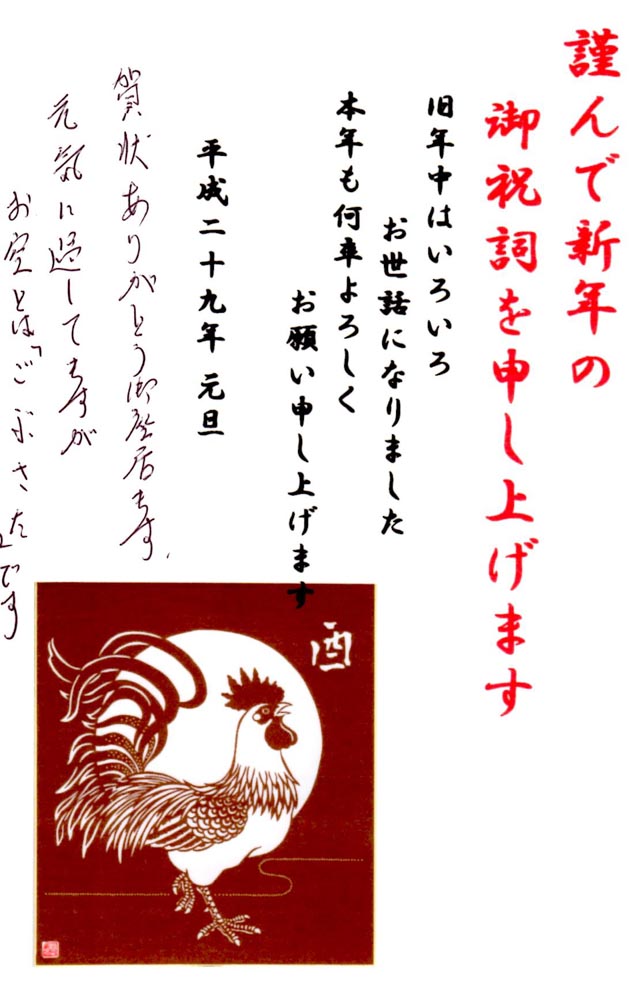 謹んで新年の
御祝詞を申し上げます
旧年中はいろいろ
お世話になりました
本年も何卒よろしく
お願い申し上げます
平成二十九年 元旦
賀状ありがとう御座居ます、
元気に過してますが
お空とは「ごぶさた」です
酉